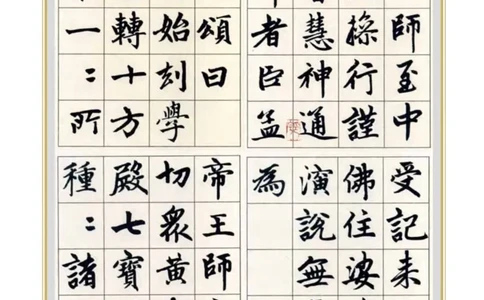 師至中
操行謹
慧神通
者臣孟
頌曰
始刻學
轉十方
一〻所
受記未
佛住婆
演說無
為
帝王師
切眾黃
殿七寶
種〻諸